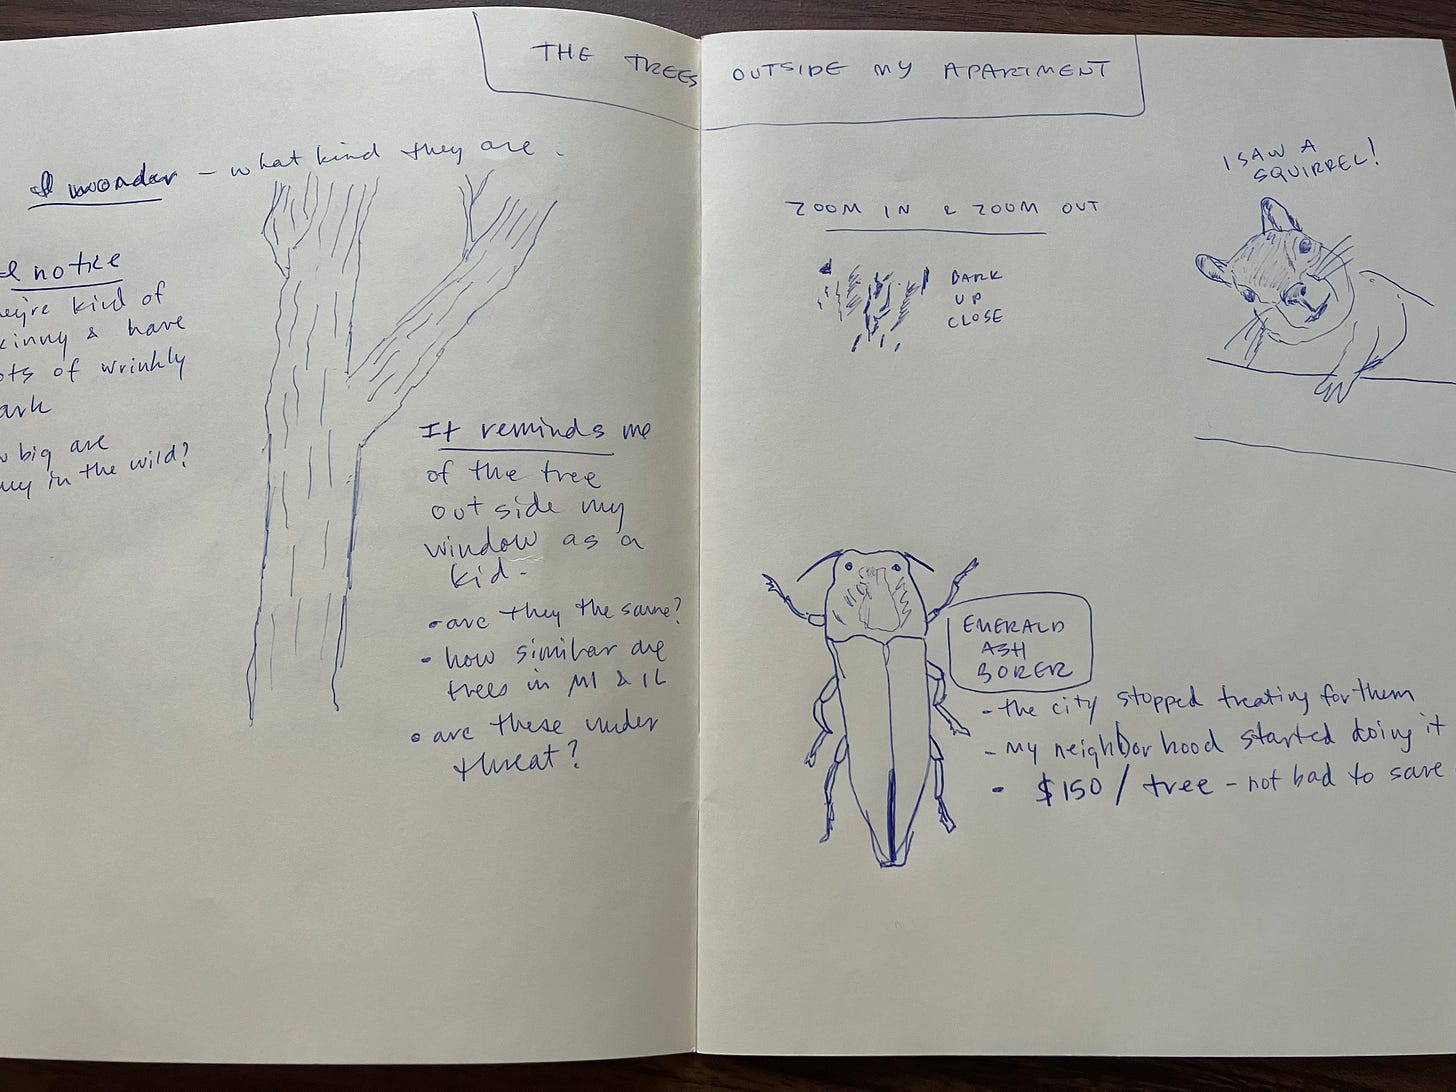 THE TREES OUTSIDE MY APARTMENT
I wonder - what kind they are.
I notice
they're kind of
skinny & have
lots of wrinkly
bark
how big are
they in the wild?
It reminds me
of the tree
outside my
window as a
kid.
• are they the same?
• how similar are
trees in MI & IL
• are these under
threat?
ZOOM IN & ZOOM OUT
DARK
UP
CLOSE
I SAW A
SQUIRREL!
EMERALD
ASH
BORER
- the city stopped treating for them
- my neighborhood started doing it
• $150 / tree - not bad to save